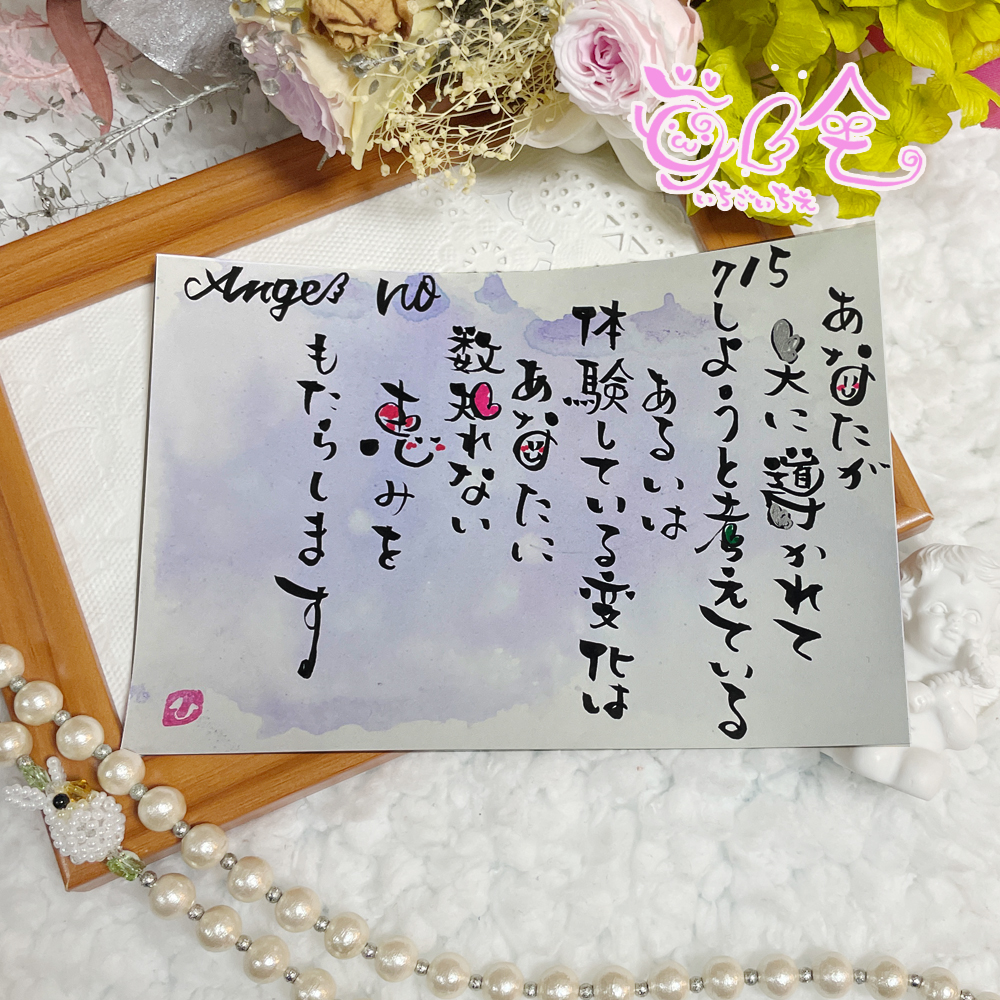 いちごいちえ
Angel no 715
あなたが
天に導かれて
しようと考えている
あるいは
体験している変化は
あなたに
数知れない
恵みを
もたらします